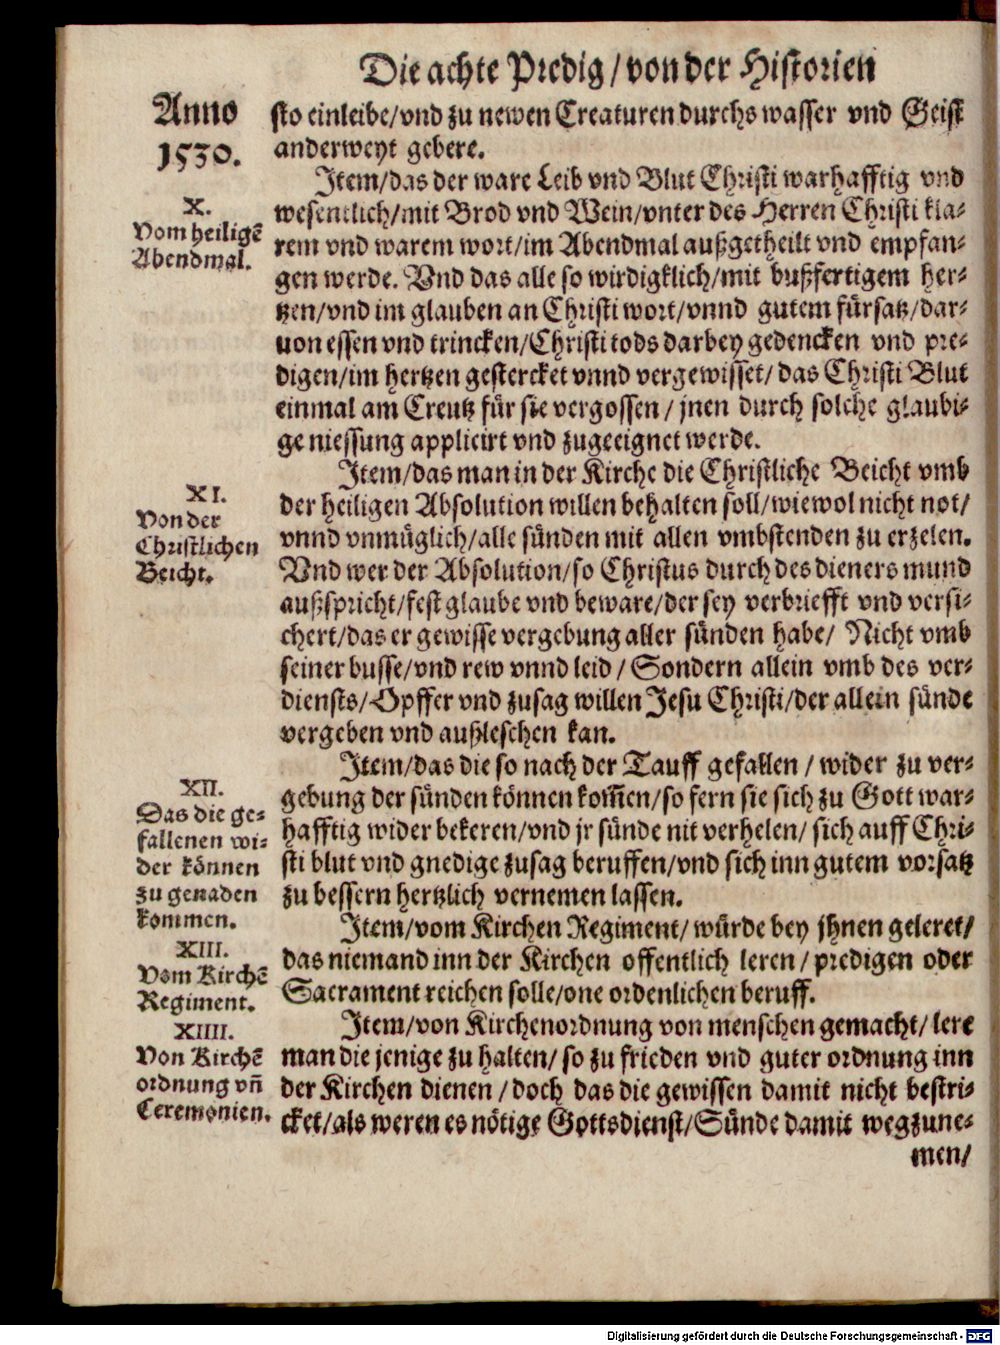 Die achte Predig/von der Historien
Anno
1530.
sto einleibe/vnd zu newen Creaturen durchs wasser vnd Geist
anderweyt gebere.
X.
Vom heiligẽ
Abendmal.
Item/das der ware Leib vnd Blut Christi warhafftig vnd
wesentlich/mit Brod vnd Wein/vnter des Herren Christi kla-
rem vnd warem wort/im Abendmal außgetheilt vnd empfan-
gen werde. Vnd das alle so wirdigklich/mit bußfertigem her-
tzen/vnd im glauben an Christi wort/vnnd gutem fürsatz/dar-
uon essen vnd trincken/Christi tods darbey gedencken vnd pre-
digen/im hertzen gestercket vnnd vergewisset/das Christi Blut
einmal am Creutz für sie vergossen/jnen durch solche glaubi-
ge niessung applicirt vnd zugeeignet werde.
XI.
Von der
Christlichen
Beicht.
Item/das man in der Kirche die Christliche Beicht vmb
der heiligen Absolution willen behalten soll/wiewol nicht not/
vnnd vnmüglich/alle sünden mit allen vmbstenden zu erzelen.
Vnd wer der Absolution/so Christus durch des dieners mund
außspricht/fest glaube vnd beware/der sey verbriefft vnd versi-
chert/das er gewisse vergebung aller sünden habe/ Nicht vmb
seiner busse/vnd rew vnnd leid/Sondern allein vmb des ver-
diensts/Opffer vnd zusag willen Jesu Christi/der allein sünde
vergeben vnd außleschen kan.
XII.
Das die ge-
fallenen wi-
der können
zu genaden
kommen.
Item/das die so nach der Tauff gefallen/wider zu ver-
gebung der sünden können kom̃en/so fern sie sich zu Gott war-
hafftig wider bekeren/vnd jr sünde nit verhelen/sich auff Chri-
sti blut vnd gnedige zusag beruffen/vnd sich inn gutem vorsatz
zu bessern hertzlich vernemen lassen.
XIII.
Vom Kirchẽ
Regiment.
Item/vom Kirchen Regiment/würde bey jhnen geleret/
das niemand inn der Kirchen offentlich leren/predigen oder
Sacrament reichen solle/one ordenlichen beruff.
XIIII.
Von Kirchẽ
ordnung vñ
Ceremonien.
Item/von Kirchenordnung von menschen gemacht/lere
man die jenige zu halten/so zu frieden vnd guter ordnung inn
der Kirchen dienen/doch das die gewissen damit nicht bestri-
cket/als weren es nötige Gottsdienst/Sünde damit wegzune-
men/
Digitalisierung gefördert durch die Deutsche Forschungsgemeinschaft - DFG